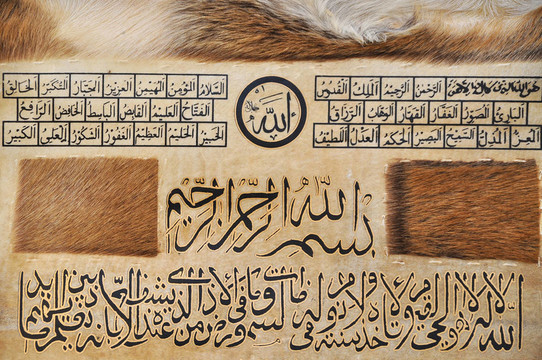 هو الله الذي لا إله إلا هو الرحمن الرحيم الملك القدوس السلام المؤمن المهيمن العزيز الجبار المتكبر الخالق
البارئ المصور الغفار القهار الوهاب الرزاق الفتاح العليم القابض الباسط الخافض الرافع
المعز المذل السميع البصير الحكم العدل اللطيف الخبير الحليم العظيم الغفور الشكور العلي الكبير
الله
بسم الله الرحمن الرحيم
الله لا إله إلا هو الحي القيوم لا تأخذه سنة ولا نوم له ما في السموات وما في الأرض من ذا الذي يشفع عنده إلا بإذنه يعلم ما بين أيديهم وما